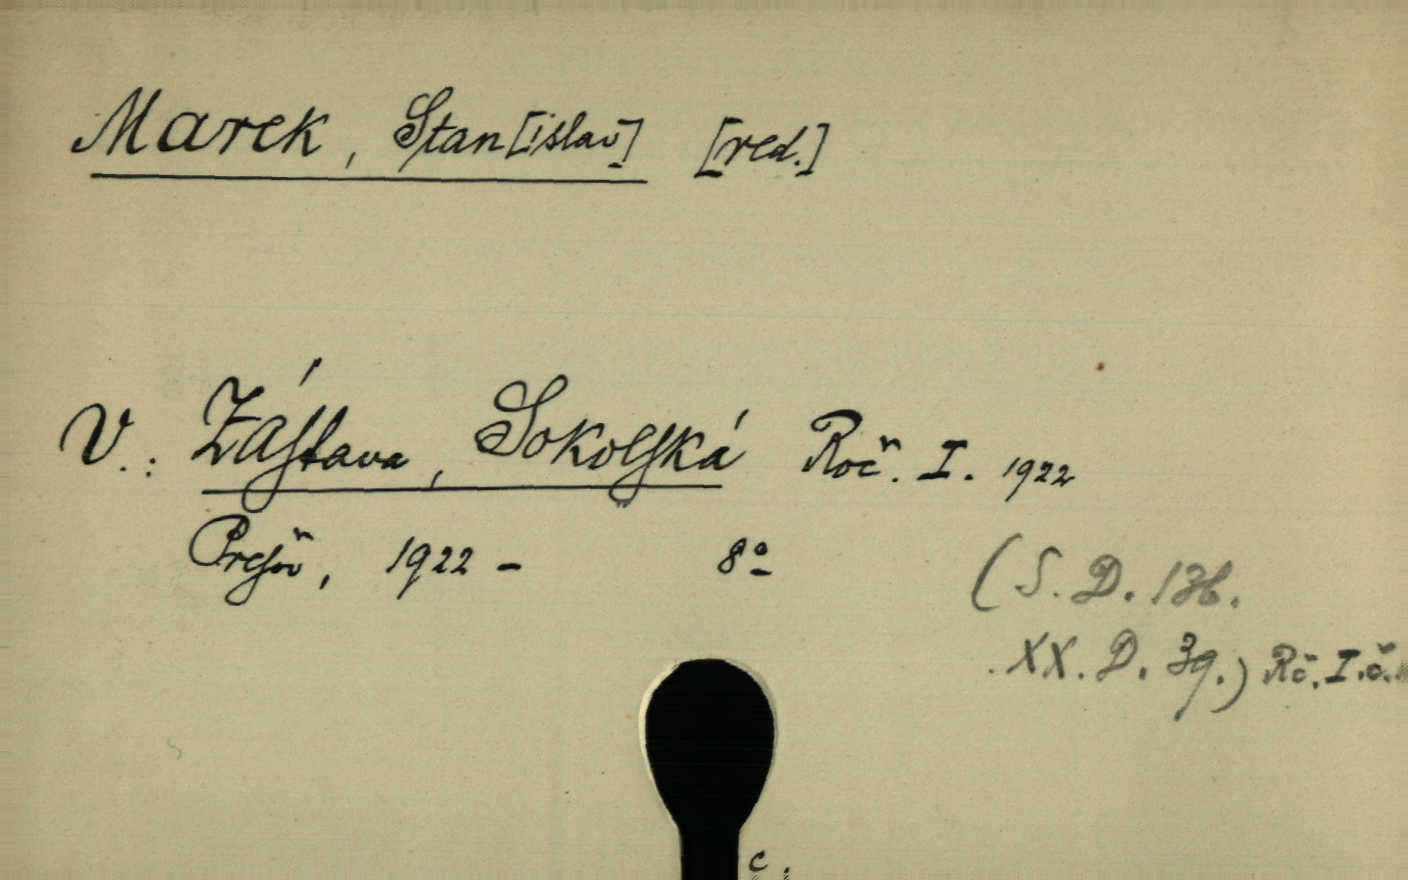 Marek, Stan[islav] [red.]
V.: Zástava, Sokolská Roč. I. 1922
Prešov, 1922 - 8º
(S. D. 136.
XX. D. 39.) Rč. I. č.
c.